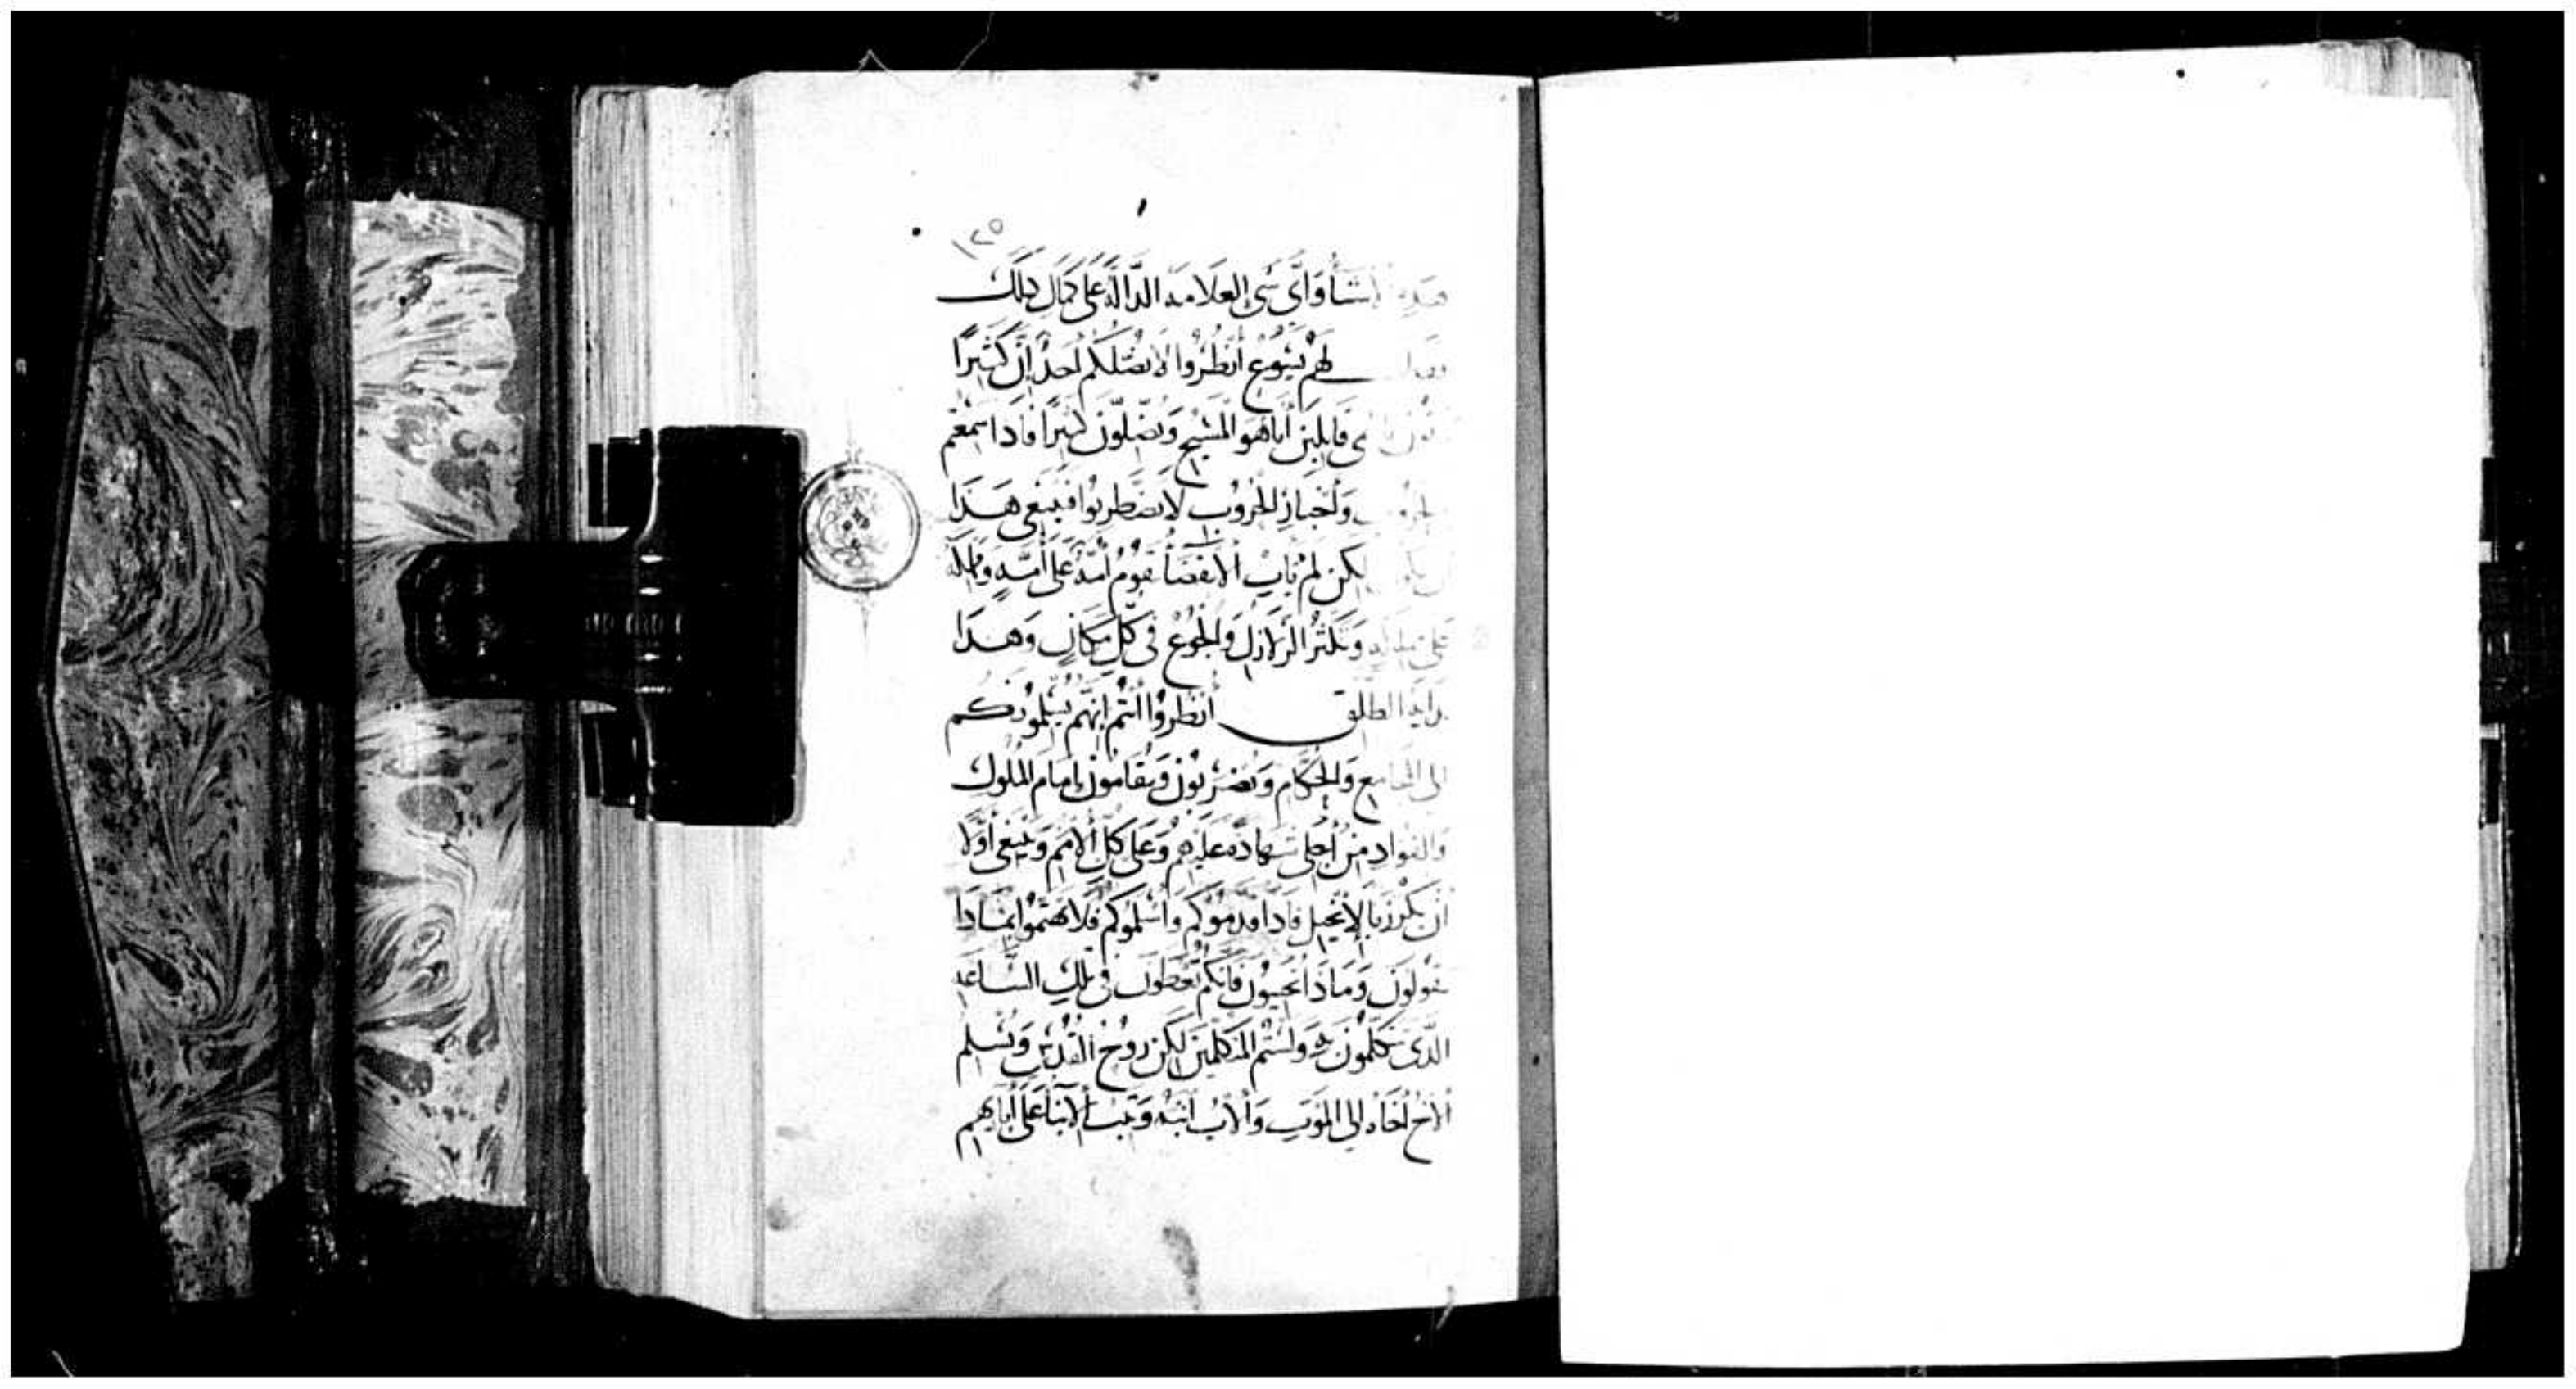 ١٢٥
هذه الأشيَأ وَأَيُّ شَىٍ العَلامَه الدَّالَّة عَلى كمَال ذلكَ
فقال لهُمْ يَسُوعُ أنظُرُوا لا يضلكم أحدٌ إنَّ كَثيرًا
يَأتونَ باسمى قايلين أناهوَ المسِيح وَيضلّونَ كثيرًا فاذا سمعْتم
بالحُرُوبِ وَأخبَارِ الحُرُوب لا تضطربوا فينبَغى هَذَا
أن يكون لكن لم يَاتِ الانقضَأ تقوم أمّة عَلى أمّه ومملكة
عَلى مملكه وَتكثرُ الزلازل وَالجُوعُ في كلّ مكانٍ وَهذَا
بدايه الطلق أنظرُوا أنتم إنّهُم يُسَلّمُونكم
إلى المجامع وَالحكام وَتضرَبُون وَتقامون امام الملُوك
وَالقواد مِن أجلى شهادَة عليهم وَعَلى كل الأمم وَينبَغى أوّلا
أن يكرز بالانجيل فاذا قدمُوكم وَاسْلموُكم فلا تهتمّوا بمَاذا
تقولونَ وَمَاذَا تجيبُون فانكم تُعطَون فى تلكَ السّاعَه
الّذى تتكلمُون به وَلستُم المتكلمين لكن رُوحُ القُدُسِ وَيُسْلم
الأخ أخَاهُ إلى المَوت وَالأبُ ابنَهُ وَتثبُ الأبنَأ عَلى أبَايهم